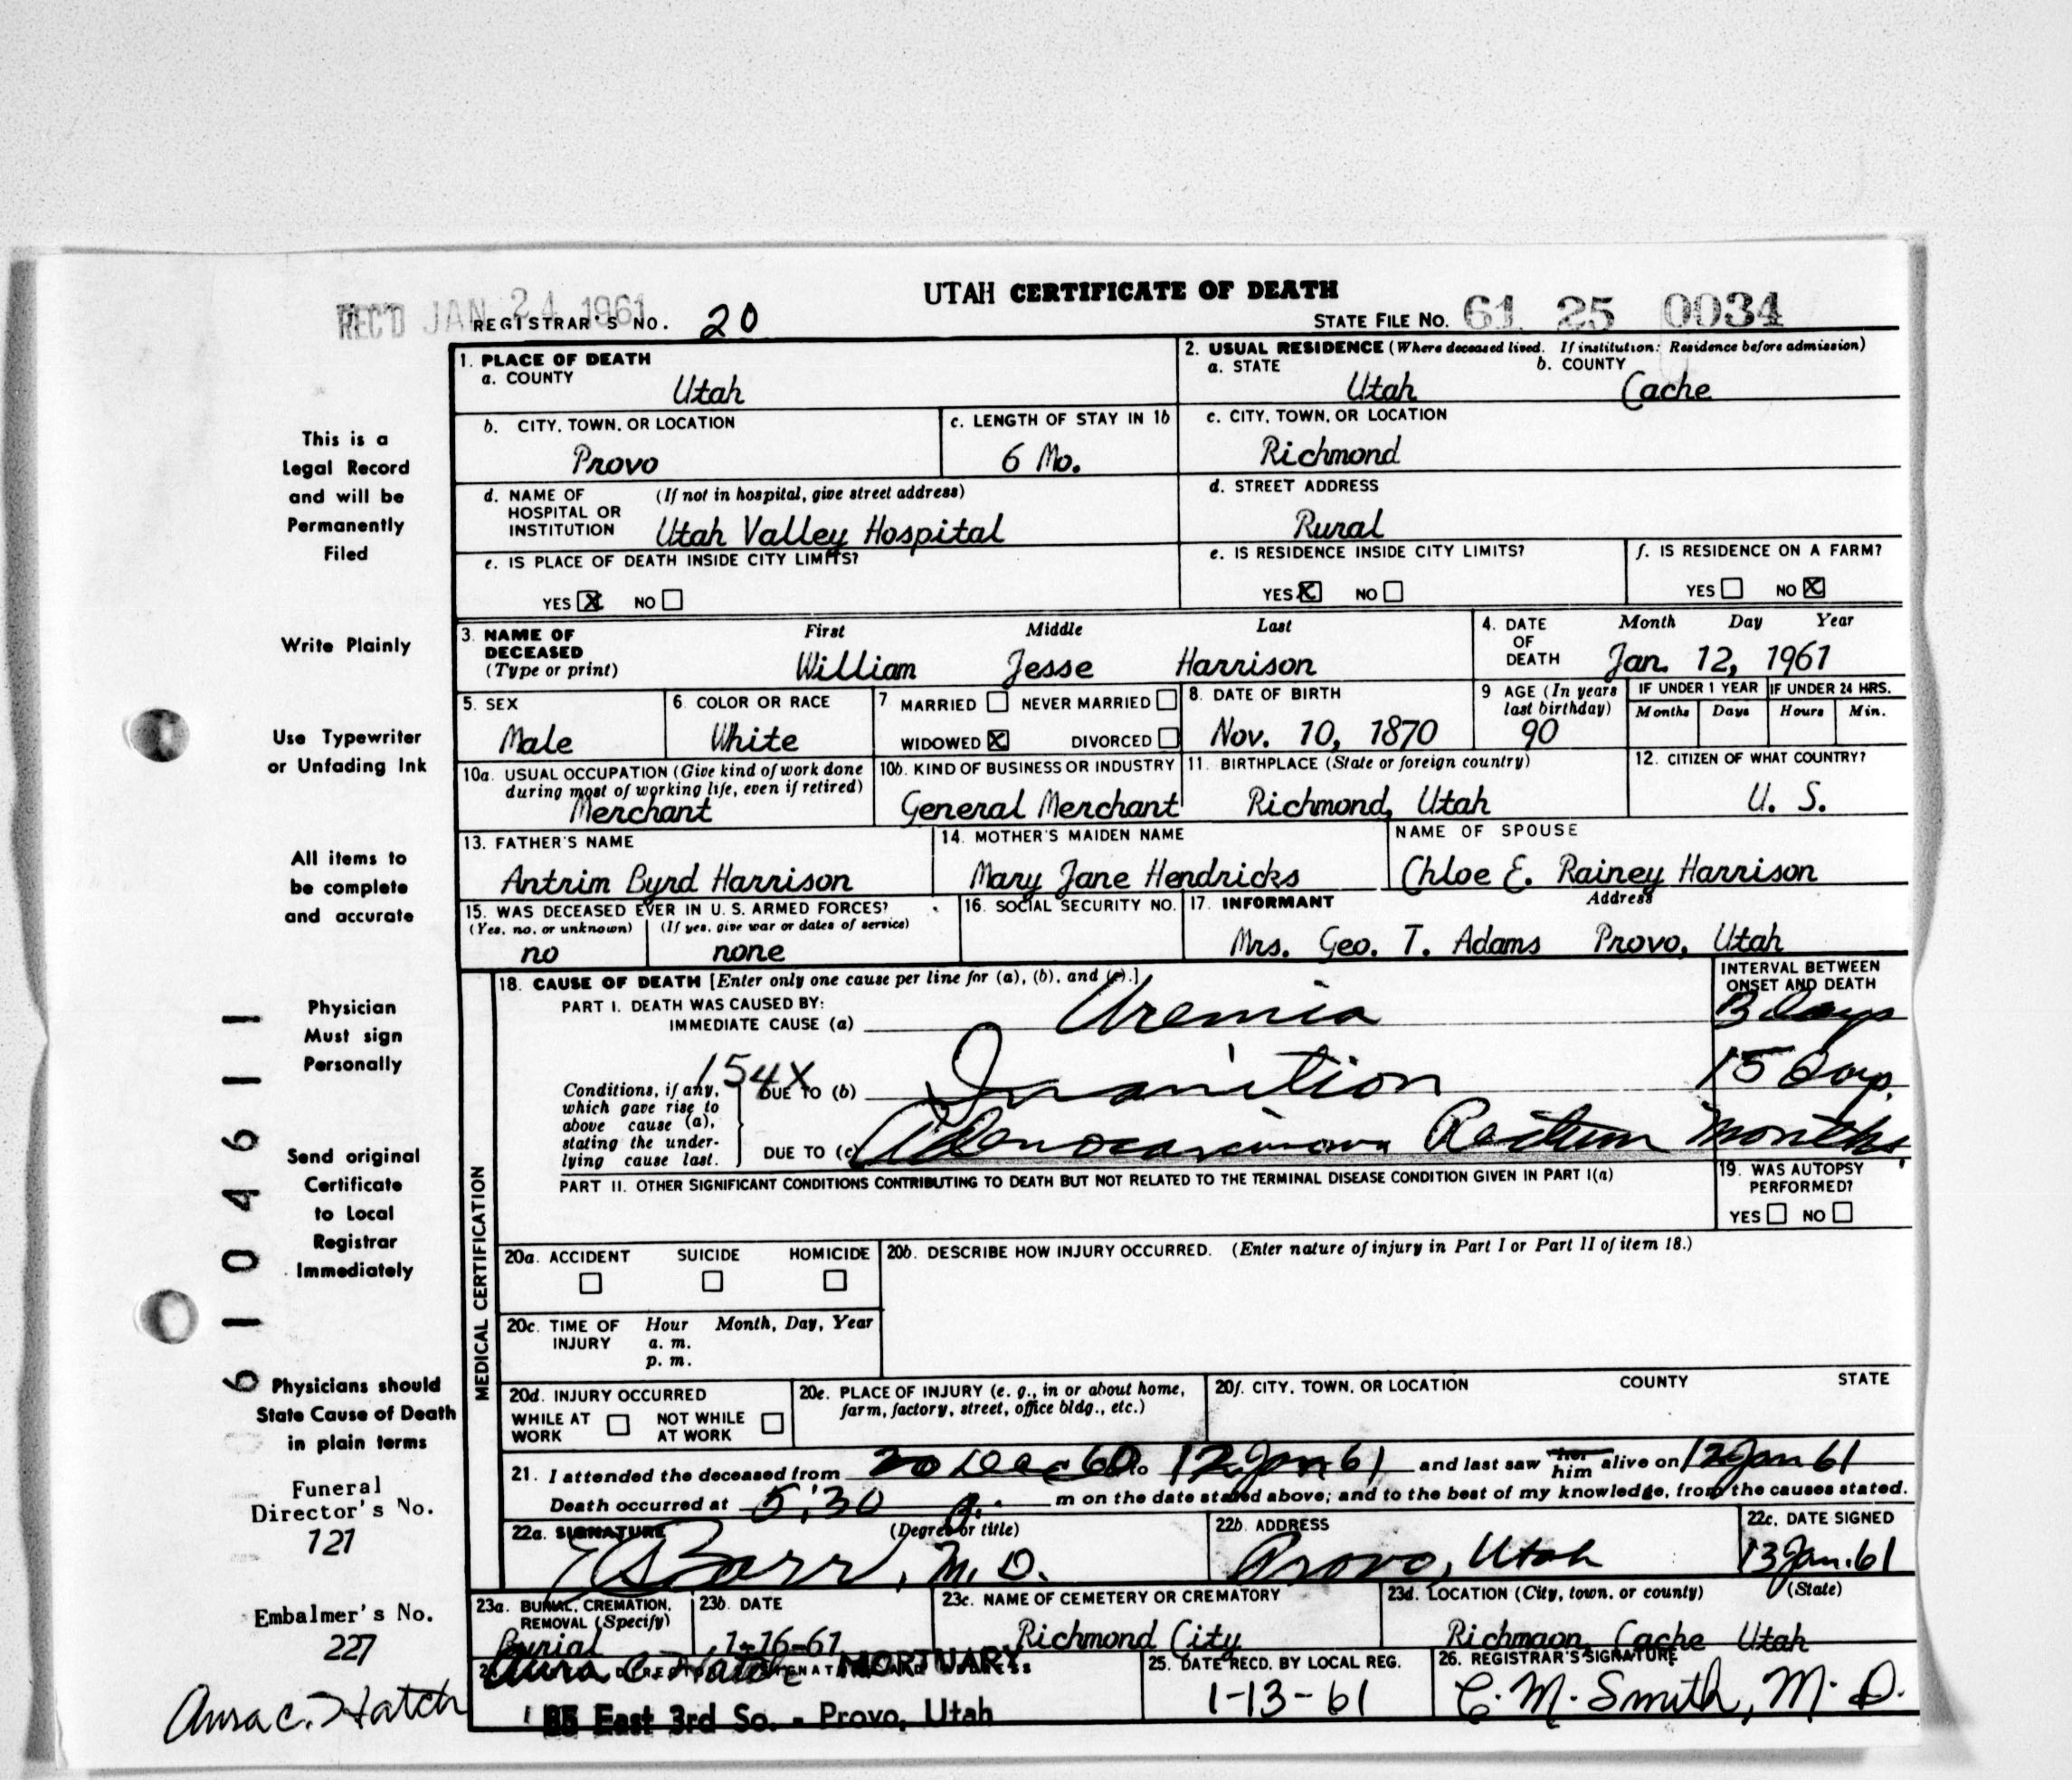 UTAH CERTIFICATE OF DEATH
REC'D JAN 24 1961
REGISTRAR'S NO. 20
STATE FILE NO. 61 25 0034
This is a
Legal Record
and will be
Permanently
Filed
Write Plainly
Use Typewriter
or Unfading Ink
All items to
be complete
and accurate
Physician
Must sign
Personally
Send original
Certificate
to Local
Registrar
Immediately
Physicians should
State Cause of Death
in plain terms
Funeral
Director's No.
121
Embalmer's No.
227
Aura C. Hatch
61046 11
1. PLACE OF DEATH
a. COUNTY
Utah
2. USUAL RESIDENCE (Where deceased lived. If institution: Residence before admission)
a. STATE b. COUNTY
Utah Cache
b. CITY, TOWN, OR LOCATION
Provo
c. LENGTH OF STAY IN 1b
6 Mo.
c. CITY, TOWN, OR LOCATION
Richmond
d. NAME OF (If not in hospital, give street address)
HOSPITAL OR
INSTITUTION Utah Valley Hospital
d. STREET ADDRESS
Rural
e. IS PLACE OF DEATH INSIDE CITY LIMITS?
YES X NO
e. IS RESIDENCE INSIDE CITY LIMITS?
YES X NO
f. IS RESIDENCE ON A FARM?
YES NO X
3. NAME OF First Middle Last
DECEASED
(Type or print) William Jesse Harrison
4. DATE Month Day Year
OF
DEATH Jan. 12, 1961
5. SEX
Male
6. COLOR OR RACE
White
7 MARRIED NEVER MARRIED
WIDOWED X DIVORCED
8. DATE OF BIRTH
Nov. 10, 1870
9 AGE (In years
last birthday)
90
IF UNDER 1 YEAR IF UNDER 24 HRS.
Months Days Hours Min.
10a. USUAL OCCUPATION (Give kind of work done
during most of working life, even if retired)
Merchant
10b. KIND OF BUSINESS OR INDUSTRY
General Merchant
11. BIRTHPLACE (State or foreign country)
Richmond, Utah
12. CITIZEN OF WHAT COUNTRY?
U. S.
13. FATHER'S NAME
Antrim Byrd Harrison
14. MOTHER'S MAIDEN NAME
Mary Jane Hendricks
NAME OF SPOUSE
Chloe E. Rainey Harrison
15. WAS DECEASED EVER IN U. S. ARMED FORCES?
(Yes, no, or unknown) (If yes, give war or dates of service)
no none
16. SOCIAL SECURITY NO.
17. INFORMANT Address
Mrs. Geo. T. Adams Provo, Utah
MEDICAL CERTIFICATION
18. CAUSE OF DEATH [Enter only one cause per line for (a), (b), and (c).]
INTERVAL BETWEEN
ONSET AND DEATH
PART I. DEATH WAS CAUSED BY:
IMMEDIATE CAUSE (a) Uremia 3 days
154X
Conditions, if any,
which gave rise to
above cause (a),
stating the under-
lying cause last.
DUE TO (b) Inanition 15 days
DUE TO (c) Adenocarcinoma Rectum Months
PART II. OTHER SIGNIFICANT CONDITIONS CONTRIBUTING TO DEATH BUT NOT RELATED TO THE TERMINAL DISEASE CONDITION GIVEN IN PART I(a)
19. WAS AUTOPSY
PERFORMED?
YES NO
20a. ACCIDENT SUICIDE HOMICIDE
20b. DESCRIBE HOW INJURY OCCURRED. (Enter nature of injury in Part I or Part II of item 18.)
20c. TIME OF Hour Month, Day, Year
INJURY a. m.
p. m.
20d. INJURY OCCURRED
WHILE AT NOT WHILE
WORK AT WORK
20e. PLACE OF INJURY (e. g., in or about home,
farm, factory, street, office bldg., etc.)
20f. CITY, TOWN, OR LOCATION COUNTY STATE
21. I attended the deceased from 20 Dec 60 to 12 Jan 61 and last saw her him alive on 12 Jan 61
Death occurred at 5:30 m on the date stated above; and to the best of my knowledge, from the causes stated.
22a. SIGNATURE (Degree or title)
Barr, M. D.
22b. ADDRESS
Provo, Utah
22c. DATE SIGNED
13 Jan. 61
23a. BURIAL, CREMATION,
REMOVAL (Specify)
Burial
23b. DATE
1-16-61
23c. NAME OF CEMETERY OR CREMATORY
Richmond City
23d. LOCATION (City, town, or county) (State)
Richmaon, Cache Utah
Aura C. Hatch MORTUARY
85 East 3rd So. - Provo, Utah
25. DATE RECD. BY LOCAL REG.
1-13-61
26. REGISTRAR'S SIGNATURE
C. M. Smith, M. D.